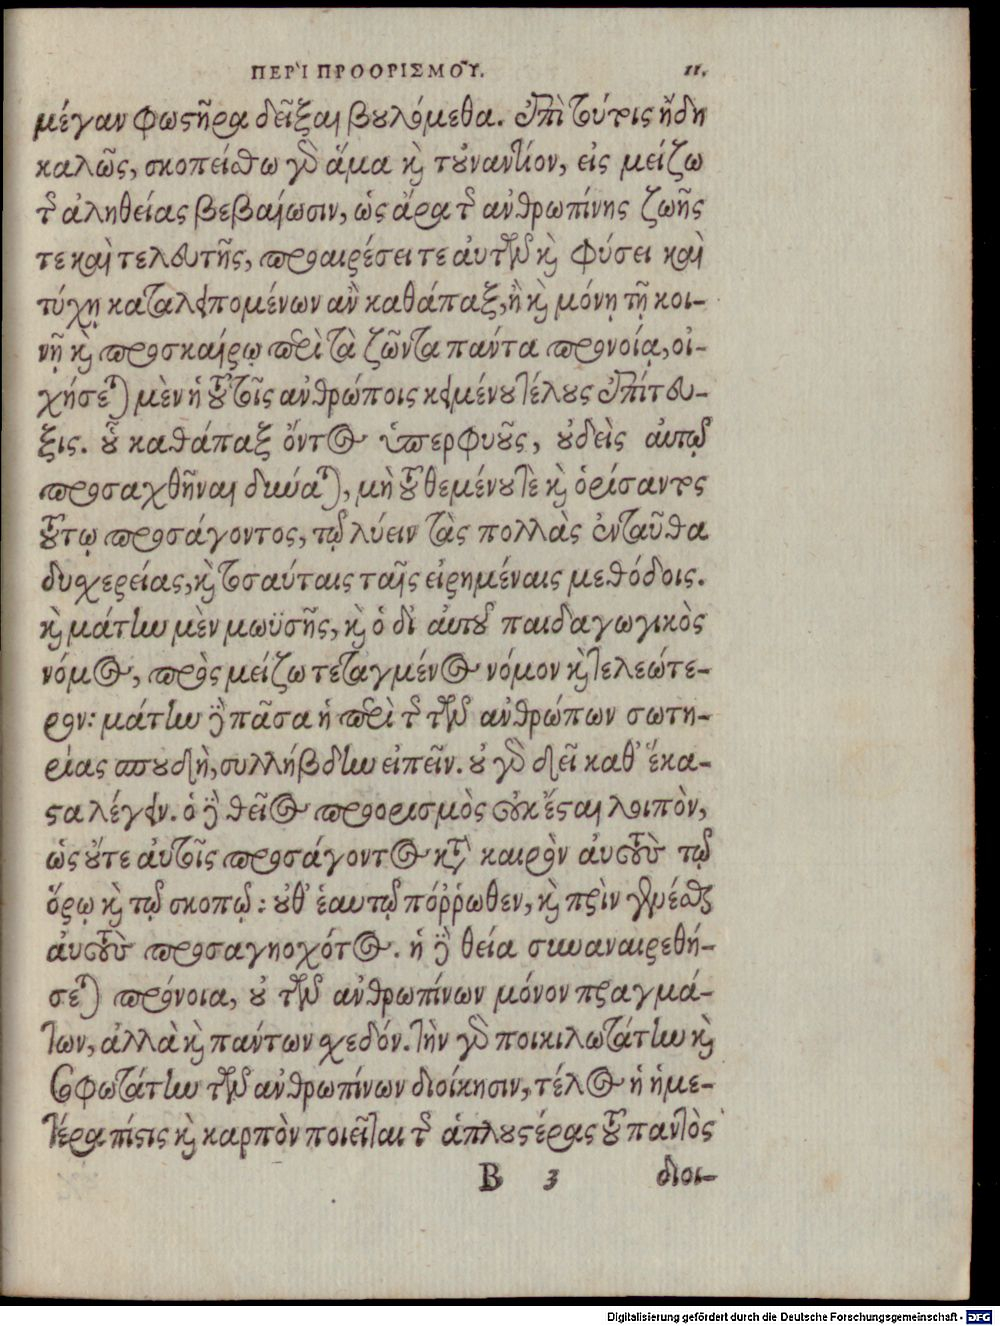 ΠΕΡῚ ΠΡΟΟΡΙΣΜΟΥ͂. 11.
μέγαν φωστῆρα δεῖξαι βουλόμεθα. ἐπὶ τούτοις ἤδη
καλῶς, σκοπείσθω γὰρ ἅμα καὶ τοὐναντίον, εἰς μείζω
τῆς ἀληθείας βεβαίωσιν, ὡς ἄρα τῆς ἀνθρωπίνης ζωῆς
τε καὶ τελευτῆς, προαιρέσει τε αὐτῶν καὶ φύσει καὶ
τύχῃ καταλειπομένων ἂν καθάπαξ, ἢ καὶ μόνῃ τῇ κοι-
νῇ καὶ προσκαίρῳ περὶ τὰ ζῶντα πάντα προνοίᾳ, οἰ-
χήσεται μὲν ἡ τοῦ τοῖς ἀνθρώποις κειμένου τέλους ἐπίτευ-
ξις. οὗ καθάπαξ ὄντος ὑπερφυοῦς, οὐδεὶς αὐτῷ
προσαχθῆναι δύναται, μὴ τοῦ θεμένου τε καὶ ὁρίσαντος
τούτῳ προσάγοντος, τῷ λύειν τὰς πολλὰς ἐνταῦθα
δυσχερείας, καὶ τοσαύταις ταῖς εἰρημέναις μεθόδοις.
καὶ μάτην μὲν μωϋσῆς, καὶ ὁ δι' αὐτοῦ παιδαγωγικὸς
νόμος, πρὸς μείζω τεταγμένος νόμον καὶ τελεώτε-
ρον: μάτην δὲ πᾶσα ἡ περὶ τῆς τῶν ἀνθρώπων σωτη-
ρίας σπουδὴ, συλλήβδην εἰπεῖν. οὐ γὰρ δεῖ καθ' ἕκα-
στα λέγειν. ὁ δὲ θεῖος προορισμὸς οὐκ ἔσται λοιπὸν,
ὡς οὔτε αὐτοῖς προσάγοντος κατὰ καιρὸν αὐτοὺς τῷ
ὅρῳ καὶ τῷ σκοπῷ: οὔθ' ἑαυτῷ πόῤῥωθεν, καὶ πρὶν γενέσθαι
αὐτοὺς προσαγηοχότος. ἡ δὲ θεία συναναιρεθή-
σεται πρόνοια, οὐ τῶν ἀνθρωπίνων μόνον πραγμά-
των, ἀλλὰ καὶ πάντων σχεδόν. τὴν γὰρ ποικιλωτάτην καὶ
σοφωτάτην τῶν ἀνθρωπίνων διοίκησιν, τέλος ἡ ἡμε-
τέρα πίστις καὶ καρπὸν ποιεῖται τῆς ἁπλουστέρας τοῦ παντὸς
B 3 διοι-
Digitalisierung gefördert durch die Deutsche Forschungsgemeinschaft - DFG